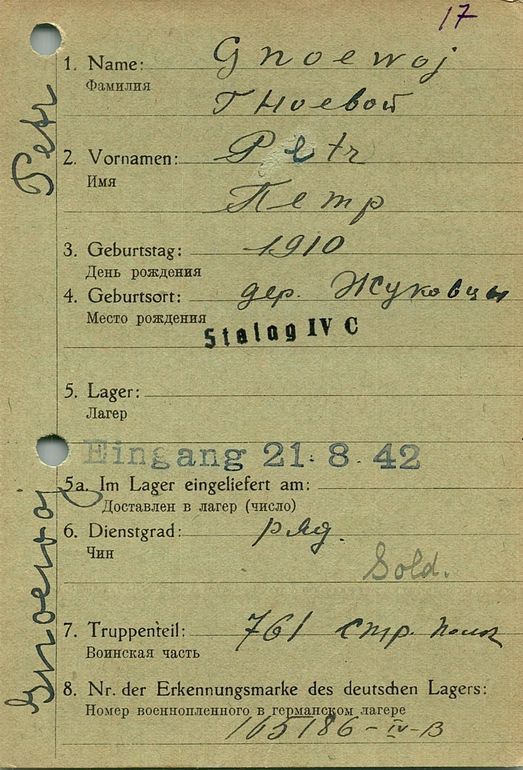 17
1. Name: Gnoewoj
Фамилия
Гноевой
2. Vornamen: Petr
Имя
Петр
3. Geburtstag: 1910
День рождения
4. Geburtsort: дер. Жуковцы
Место рождения
Stalag IV C
5. Lager:
Лагер
Eingang 21. 8. 42
5a. Im Lager eingeliefert am:
Доставлен в лагер (число)
6. Dienstgrad: ряд.
Чин
Sold.
7. Truppenteil: 761 стр. полк
Воинская часть
8. Nr. der Erkennungsmarke des deutschen Lagers:
Номер военнопленного в германском лагере
165186-IV-B
Gnoewoj Petr